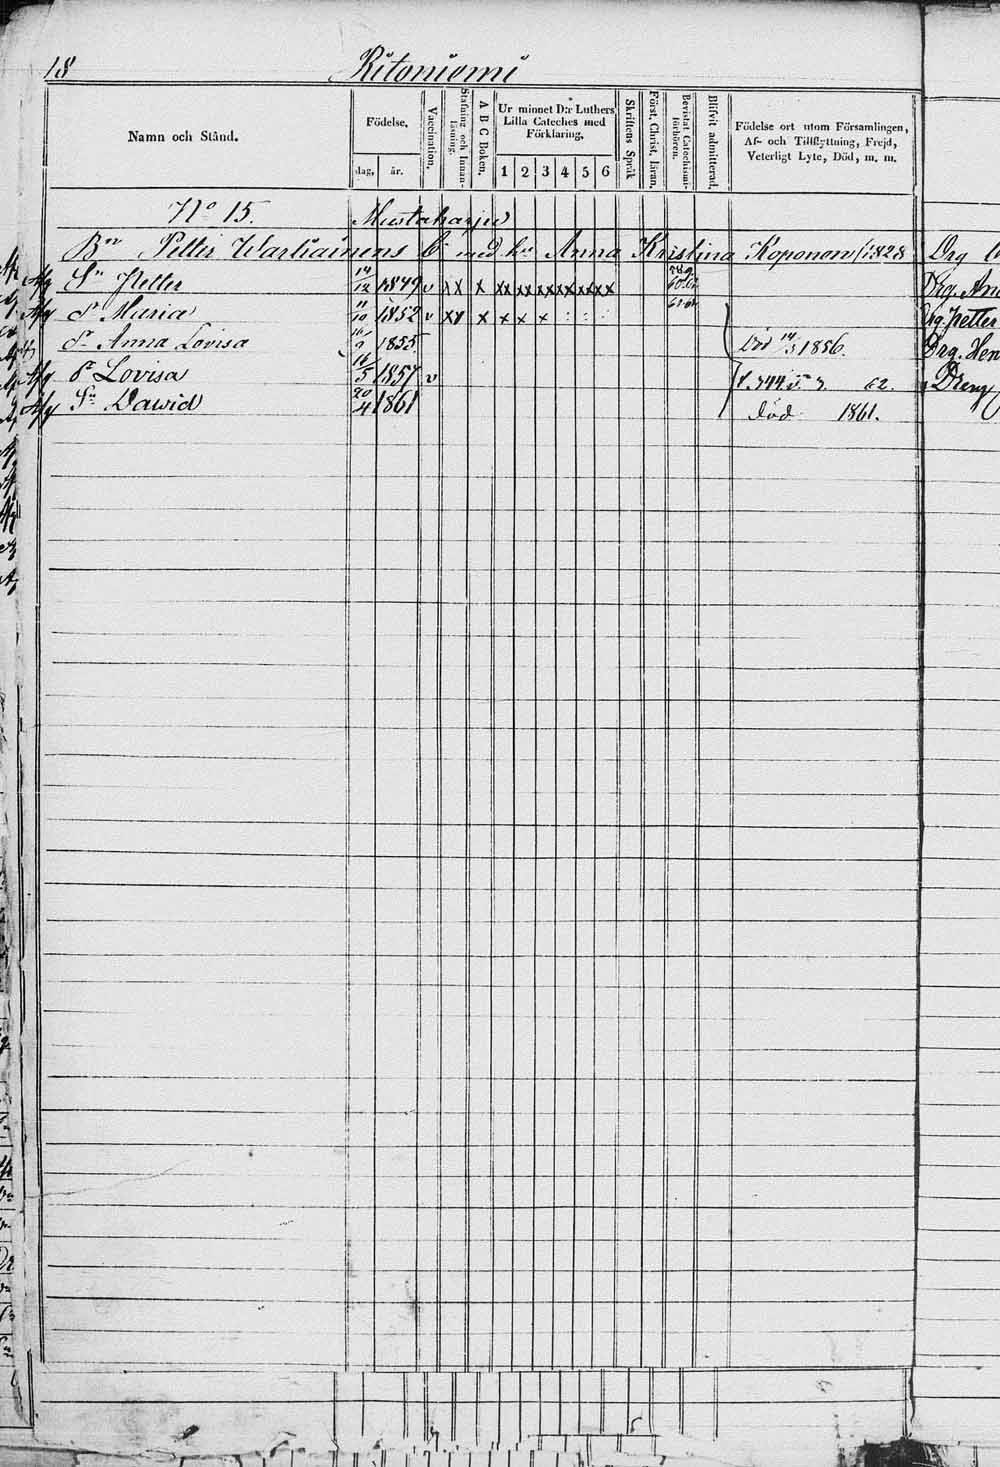 18 Ritoniemi
Namn och Stånd.
Födelse.
dag. år.
Vaccination.
Stafning och Innanläsning.
A B C Boken.
Ur minnet D:r Luthers Lilla Cateches med Förklaring.
1 2 3 4 5 6
Skriftens Språk
Först. Christ. läran.
Bevistat Catechismi-förhören.
Blifvit admitterad.
Födelse ort utom Församlingen, Af- och Tillflyttning, Frejd, Veterligt Lyte, Död, m. m.
No 15. Mustaharju
Bn Petter Wartiainens med hu Anna Kristina Koponen f. 1828 Drg
Afg Sn Petter 14/12 1849 v xx x xx xx xx xx xx xx Drg. And
Afg Dr Maria 11/10 1852 v xx x x x x Drg. Petter
Dr Anna Lovisa 1855 Död 14/3 1856. Drg. Hen
Afg Dr Lovisa 16/5 1857 v 62. Dreng
Afg Sn Dawid 20/4 1861 död 1861.